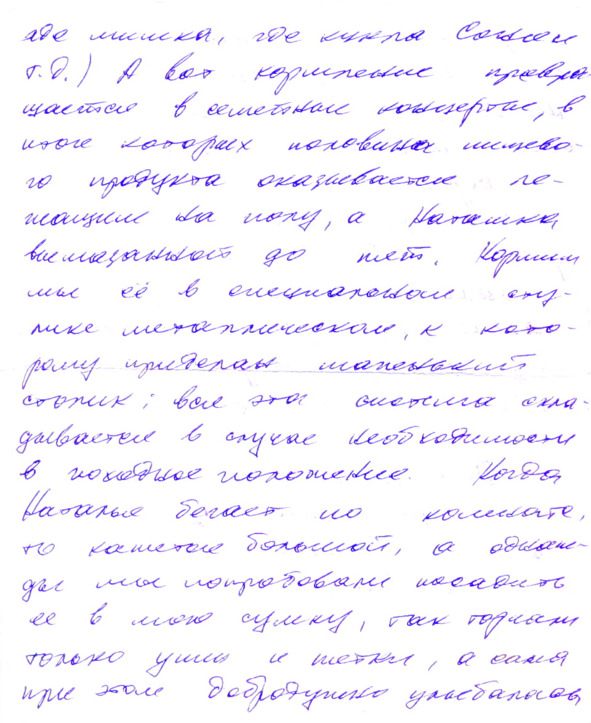 где мишка, где кукла Соня и
т.д.) А вот кормление превра-
щается в семейные концерты, в
итоге которых половина пищево-
го продукта оказывается ле-
жащим на полу, а Наташка
вымазанной до пят. Кормим
мы её в специальном сту-
лике металлическом, к кото-
рому приделан маленький
столик; вся эта система скла-
дывается в случае необходимости
в походное положение. Когда
Наталья бегает по комнате,
то кажется большой, а однаж-
ды мы попробовали посадить
ее в мою сумку, так торчали
только уши и
а сама
при этом добродушно улыбалась